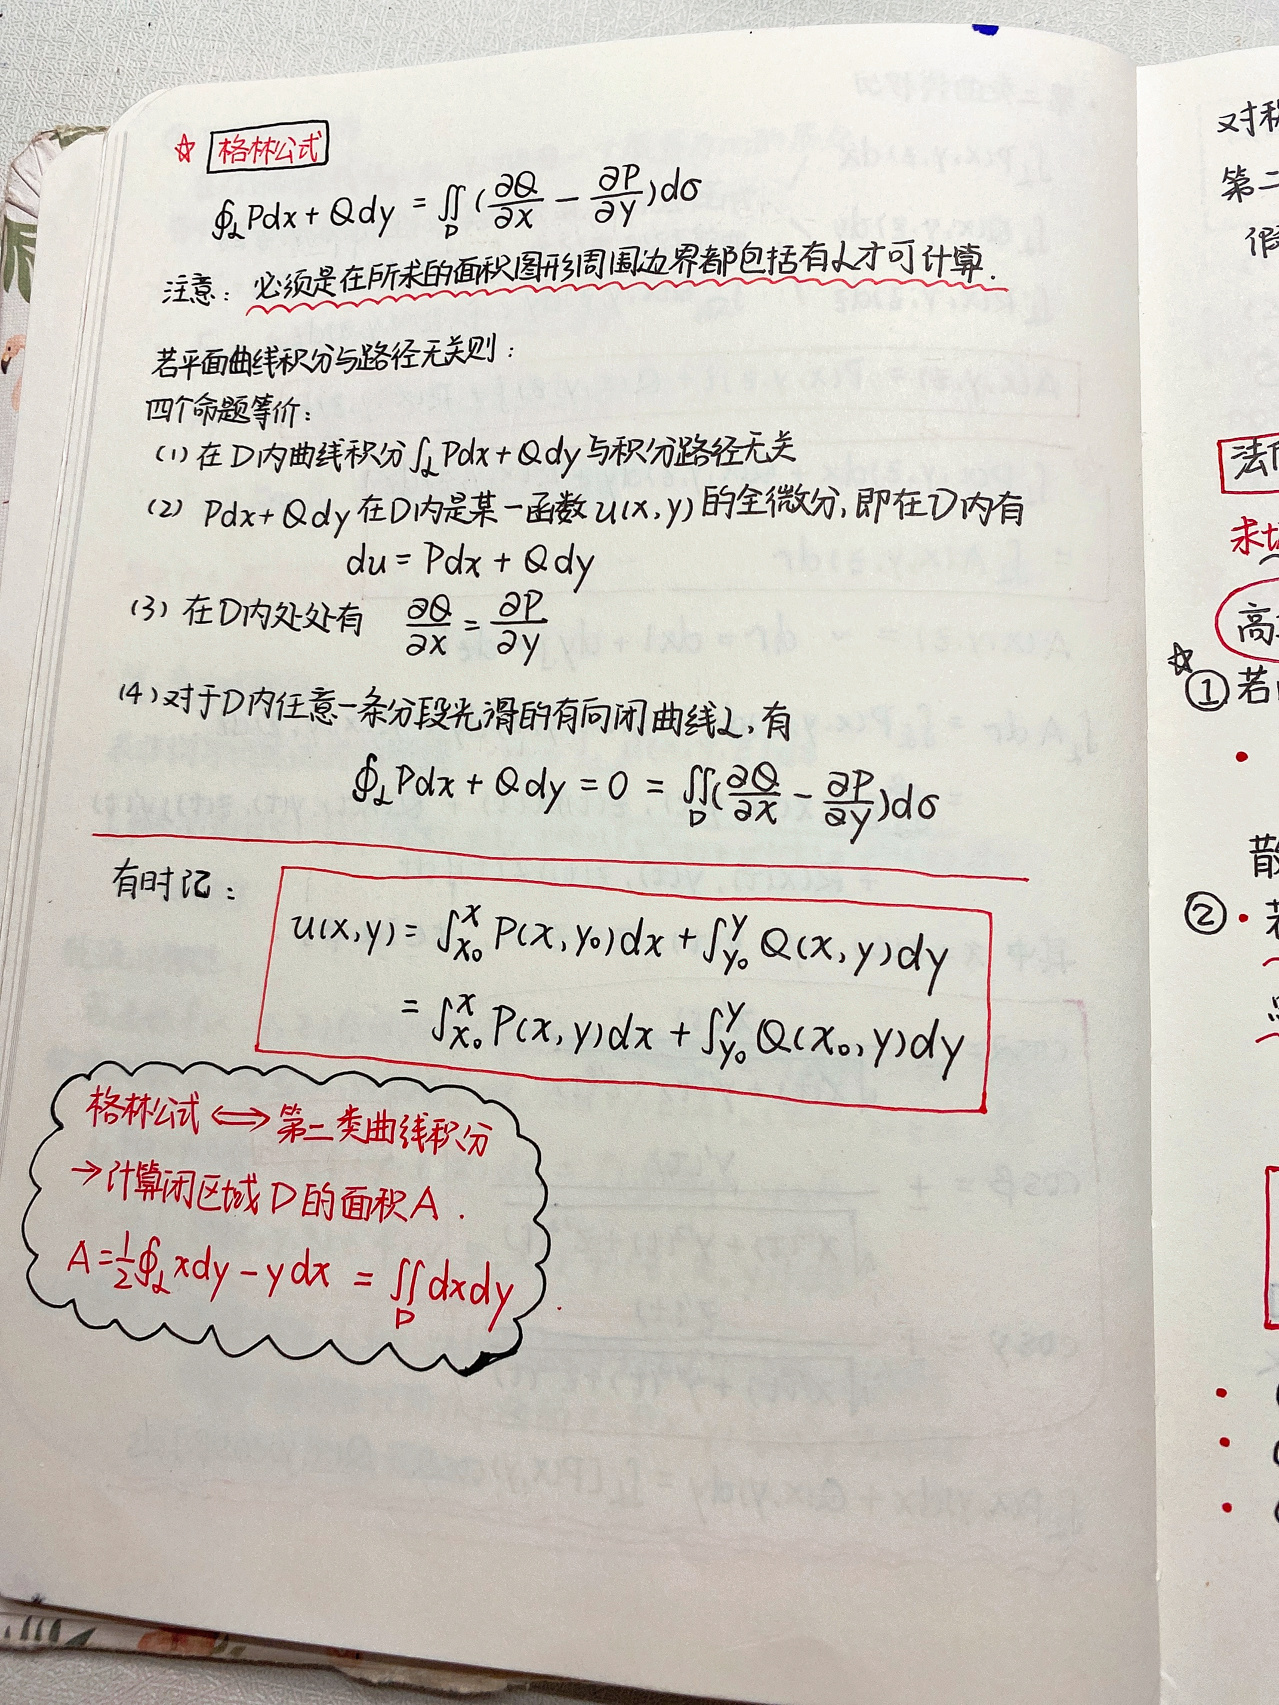 ☆ 格林公式
∮_L Pdx + Qdy = ∬_D (∂Q/∂x − ∂P/∂y)dσ
注意：必须是在所求的面积图形周围边界都包括有L才可计算.
若平面曲线积分与路径无关则：
四个命题等价：
(1) 在D内曲线积分∫_L Pdx + Qdy与积分路径无关
(2) Pdx + Qdy在D内是某一函数u(x,y)的全微分,即在D内有
du = Pdx + Qdy
(3) 在D内处处有 ∂Q/∂x = ∂P/∂y
(4) 对于D内任意一条分段光滑的有向闭曲线L,有
∮_L Pdx + Qdy = 0 = ∬_D (∂Q/∂x − ∂P/∂y)dσ
有时记：
u(x,y) = ∫_{x₀}^x P(x,y₀)dx + ∫_{y₀}^y Q(x,y)dy
= ∫_{x₀}^x P(x,y)dx + ∫_{y₀}^y Q(x₀,y)dy
格林公式 ⟺ 第二类曲线积分
→计算闭区域D的面积A.
A = 1/2 ∮_L xdy − ydx = ∬_D dxdy
对积
第二
☆
① 若
②